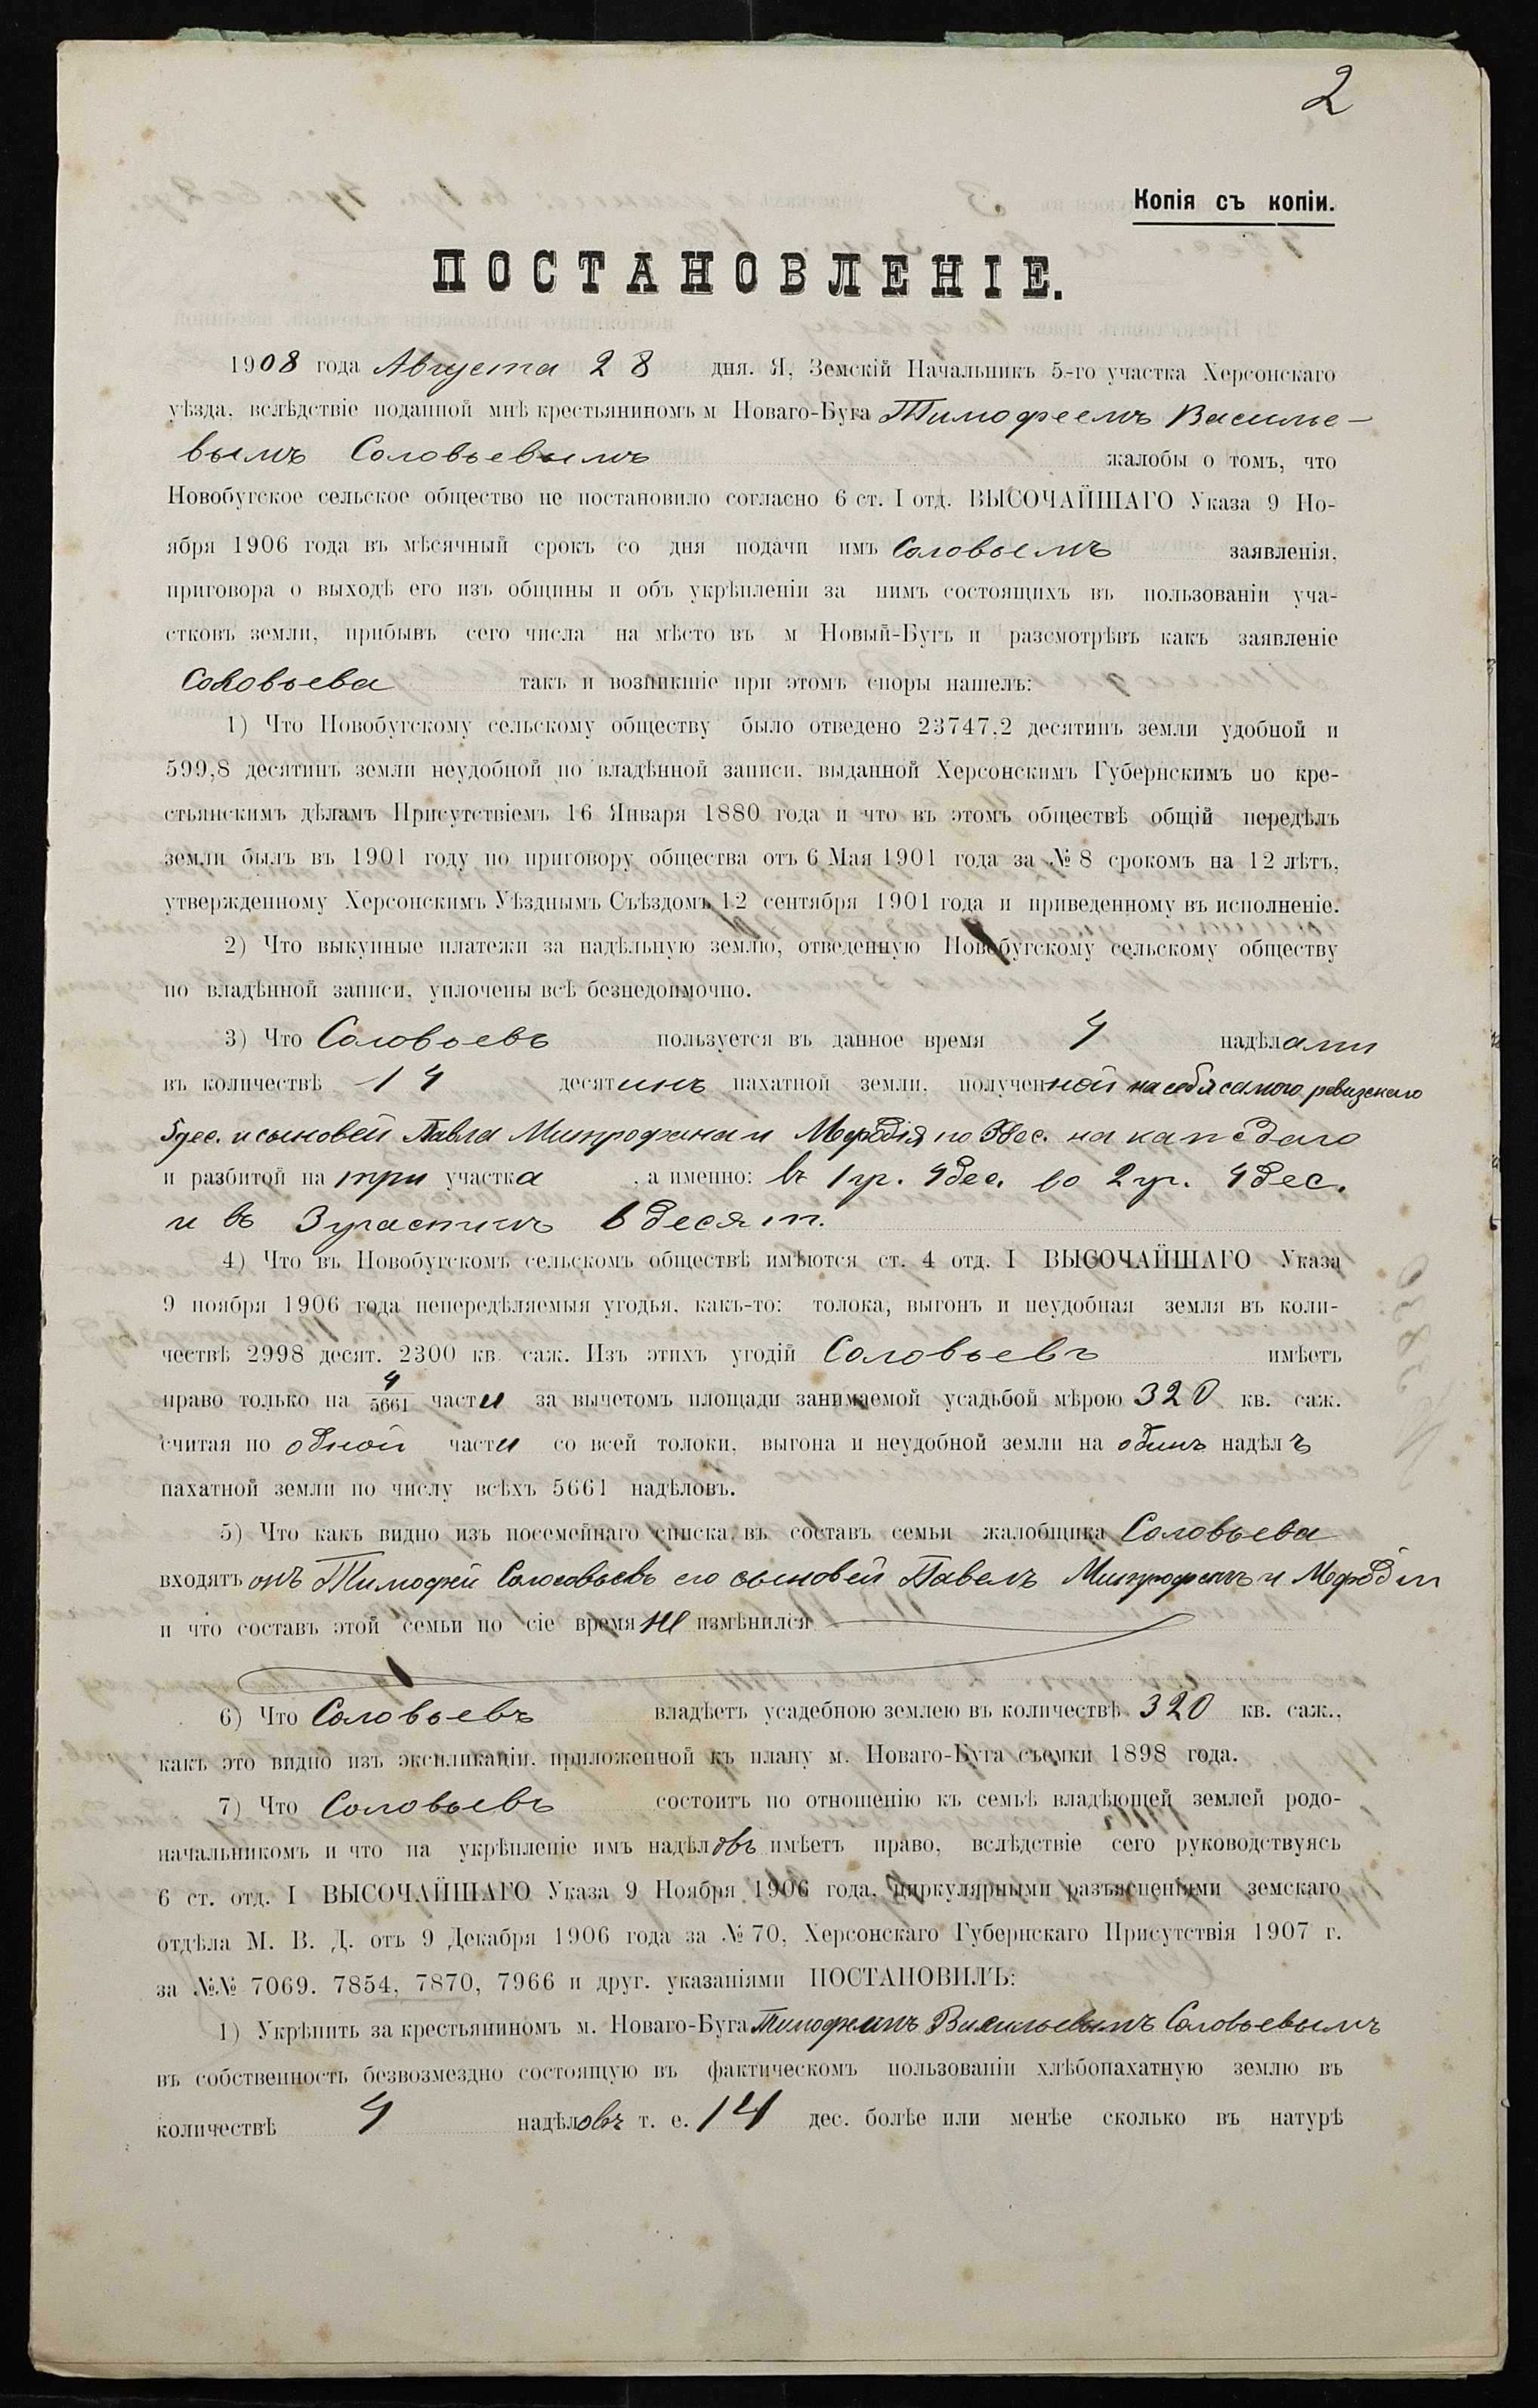 2
Копія съ копіи.
ПОСТАНОВЛЕНІЕ.
1908 года Августа 28 дня. Я, Земскій Начальникъ 5-го участка Херсонскаго
уѣзда, вслѣдствіе поданной мнѣ крестьяниномъ м Новаго-Буга Тимофеемъ Василье-
вымъ Соловьевымъ жалобы о томъ, что
Новобугское сельское общество не постановило согласно 6 ст. I отд. ВЫСОЧАЙШАГО Указа 9 Но-
ября 1906 года въ мѣсячный срокъ со дня подачи имъ Соловьемъ заявленія,
приговора о выходѣ его изъ общины и объ укрѣпленіи за нимъ состоящихъ въ пользованіи уча-
стковъ земли, прибывъ сего числа на мѣсто въ м Новый-Бугъ и разсмотрѣвъ какъ заявленіе
Соловьева такъ и возникшіе при этомъ споры нашелъ:
1) Что Новобугскому сельскому обществу было отведено 23747,2 десятинъ земли удобной и
599,8 десятинъ земли неудобной по владѣнной записи, выданной Херсонскимъ Губернскимъ по кре-
стьянскимъ дѣламъ Присутствіемъ 16 Января 1880 года и что въ этомъ обществѣ общій передѣлъ
земли былъ въ 1901 году по приговору общества отъ 6 Мая 1901 года за № 8 срокомъ на 12 лѣтъ,
утвержденному Херсонскимъ Уѣзднымъ Съѣздомъ 12 сентября 1901 года и приведенному въ исполненіе.
2) Что выкупные платежи за надѣльную землю, отведенную Новобугскому сельскому обществу
по владѣнной записи, уплочены всѣ безнедоимочно.
3) Что Соловьевъ пользуется въ данное время 4 надѣлами
въ количествѣ 14 десятинъ пахатной земли, полученной на себя самого ревизскаго
5 дес. и сыновей Павла Митрофана и Мефодія по 3 дес. на каждаго
и разбитой на три участка , а именно: въ 1 уч. 4 дес. во 2 уч. 4 дес.
и въ 3 участкѣ 6 десят.
4) Что въ Новобугскомъ сельскомъ обществѣ имѣются ст. 4 отд. I ВЫСОЧАЙШАГО Указа
9 ноября 1906 года непередѣляемыя угодья, какъ-то: толока, выгонъ и неудобная земля въ коли-
чествѣ 2998 десят. 2300 кв. саж. Изъ этихъ угодій Соловьевъ имѣетъ
право только на 4/5661 части за вычетомъ площади занимаемой усадьбой мѣрою 320 кв. саж.
считая по одной части со всей толоки, выгона и неудобной земли на одинъ надѣлъ
пахатной земли по числу всѣхъ 5661 надѣловъ.
5) Что какъ видно изъ посемейнаго списка, въ составъ семьи жалобщика Соловьева
входятъ онъ Тимофей Соловьевъ его сыновей Павелъ Митрофанъ и Мефодій
и что составъ этой семьи по сіе время не измѣнился
6) Что Соловьевъ владѣетъ усадебною землею въ количествѣ 320 кв. саж.,
какъ это видно изъ экспликаціи, приложенной къ плану м. Новаго-Буга съемки 1898 года.
7) Что Соловьевъ состоитъ по отношенію къ семьѣ владѣющей землей родо-
начальникомъ и что на укрѣпленіе имъ надѣловъ имѣетъ право, вслѣдствіе сего руководствуясь
6 ст. отд. I ВЫСОЧАЙШАГО Указа 9 Ноября 1906 года, циркулярными разъясненіями земскаго
отдѣла М. В. Д. отъ 9 Декабря 1906 года за № 70, Херсонскаго Губернскаго Присутствія 1907 г.
за №№ 7069. 7854, 7870, 7966 и друг. указаніями ПОСТАНОВИЛЪ:
1) Укрѣпить за крестьяниномъ м. Новаго-Буга Тимофеемъ Васильевымъ Соловьевымъ
въ собственность безвозмездно состоящую въ фактическомъ пользованіи хлѣбопахатную землю въ
количествѣ 4 надѣловъ т. е. 14 дес. болѣе или менѣе сколько въ натурѣ